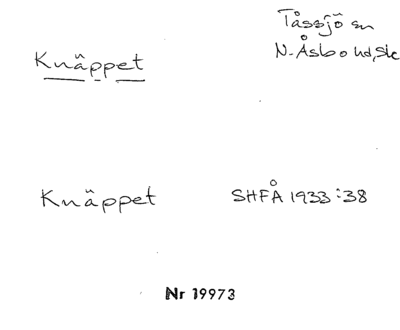 Tåssjö sn
Knäppet
N. Åsbo hd, Sk
Knäppet
SHFÅ 1933:38
Nr 19973